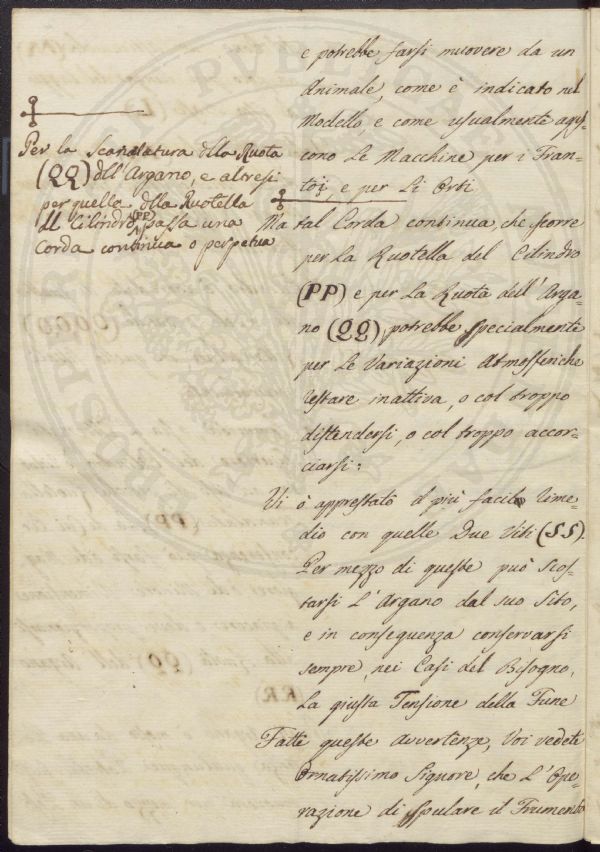 e potrebbe farsi muovere da un
Animale, come è indicato nel
Modello, e come usualmente agis-
cono Le Macchine per i Fran-
toj, e per Li Orti
Per la Scanalatura della Ruota
(QQ) dell'Argano, e altresì
per quella della Ruotella
del Cilindro (PP) passa una
Corda continua o perpetua
Ma tal Corda continua, che scorre
per La Ruotella del Cilindro
(PP) e per La Ruota dell'Arga-
no (QQ), potrebbe specialmente
per Le Variazioni Atmosferiche
restare inattiva, o col troppo
distendersi, o col troppo accor-
ciarsi:
Vi ò apprestato il più facile rime-
dio con quelle Due Viti (SS).
Per mezzo di queste può scos-
tarsi L'Argano dal suo Sito,
e in conseguenza conservarsi
sempre, nei Casi del Bisogno,
La giusta Tensione della Fune
Fatte queste avvertenze, Voi vedete
Ornatissimo Signore, che L'Ope-
razione di spulare il Frumento